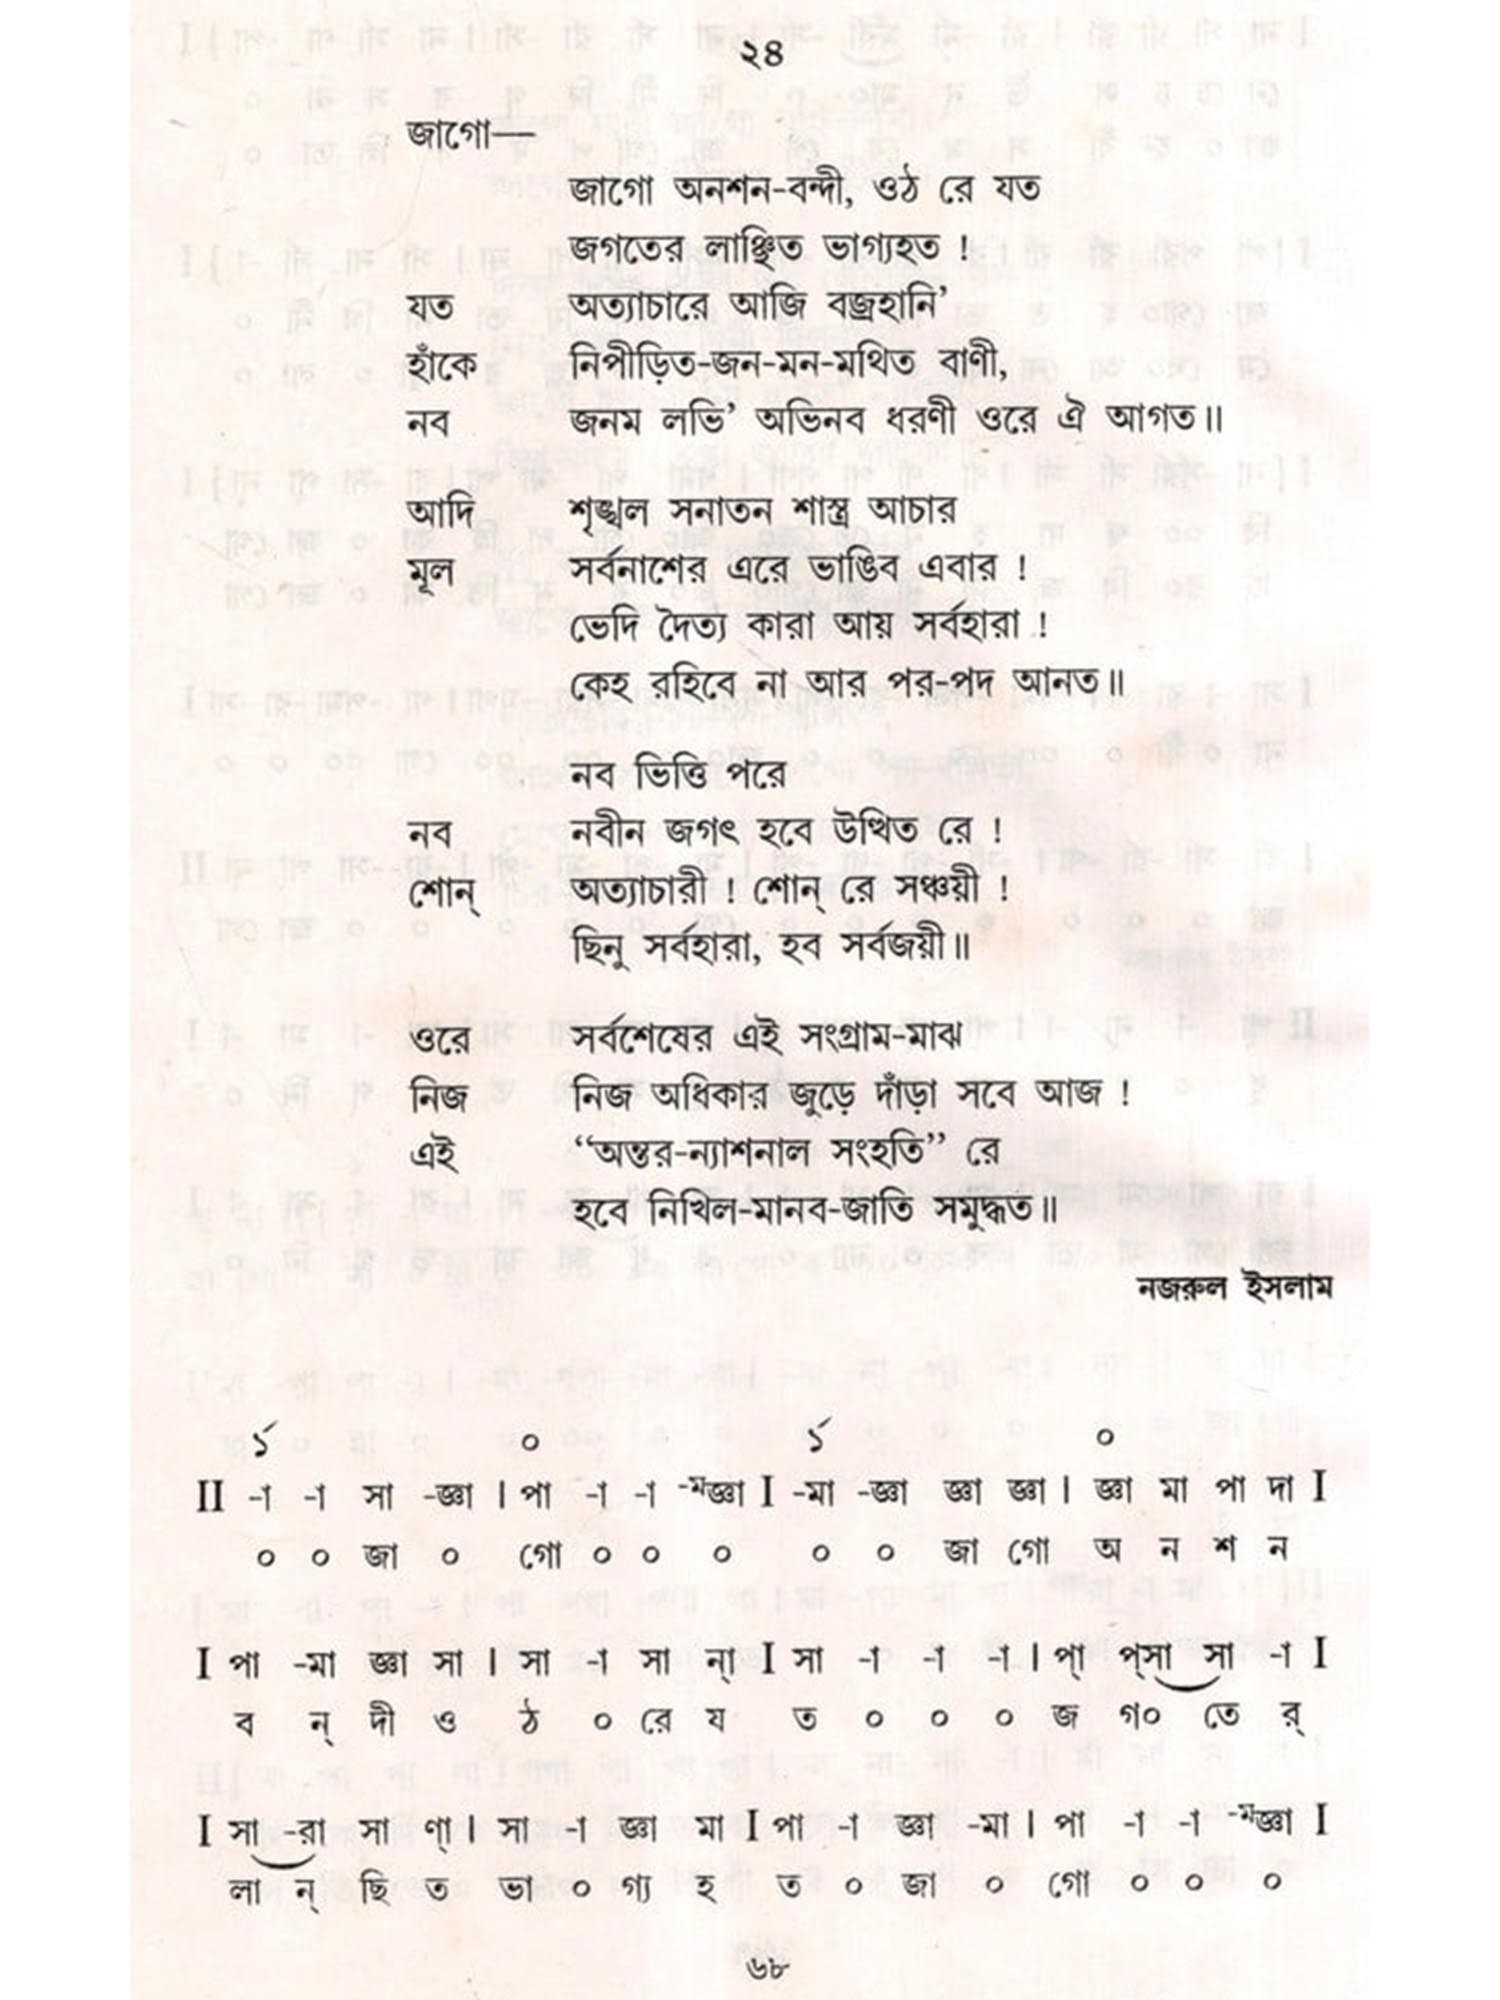 ২৪
জাগো—
জাগো অনশন-বন্দী, ওঠ রে যত
জগতের লাঞ্ছিত ভাগ্যহত !
যত অত্যাচারে আজি বজ্রহানি’
হাঁকে নিপীড়িত-জন-মন-মথিত বাণী,
নব জনম লভি’ অভিনব ধরণী ওরে ঐ আগত॥
আদি শৃঙ্খল সনাতন শাস্ত্র আচার
মূল সর্বনাশের এরে ভাঙিব এবার !
ভেদি দৈত্য কারা আয় সর্বহারা !
কেহ রহিবে না আর পর-পদ আনত॥
নব ভিত্তি পরে
নব নবীন জগৎ হবে উত্থিত রে !
শোন্ অত্যাচারী ! শোন্ রে সঞ্চয়ী !
ছিনু সর্বহারা, হব সর্বজয়ী॥
ওরে সর্বশেষের এই সংগ্রাম-মাঝ
নিজ নিজ অধিকার জুড়ে দাঁড়া সবে আজ !
এই “অন্তর-ন্যাশনাল সংহতি” রে
হবে নিখিল-মানব-জাতি সমুদ্ধত॥
নজরুল ইসলাম
১´ ০ ১´ ০
II -া -া সা -জ্ঞা । পা -া -া -মজ্ঞা I -মা -জ্ঞা জ্ঞা জ্ঞা । জ্ঞা মা পা দা I
০ ০ জা ০ গো ০ ০ ০ ০ ০ জা গো অ ন শ ন
I পা -মা জ্ঞা সা । সা -া সা ন্া I সা -া -া -া । প্া প্সা সা -া I
ব ন্ দী ও ঠ ০ রে য ত ০ ০ ০ জ গ০ তে র্
I সা -রা সা ণ্া । সা -া জ্ঞা মা I পা -া জ্ঞা -মা । পা -া -া -মজ্ঞা I
লা ন্ ছি ত ভা ০ গ্য হ ত ০ জা ০ গো ০ ০ ০
৬৮